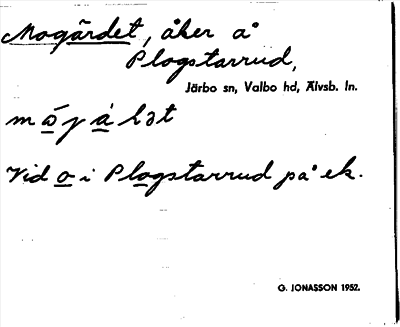 Mogärdet, åker å
Plogstarrud,
Järbo sn, Valbo hd, Älvsb. ln.
Vid o i Plogstarrud på ek.
G. JONASSON 1952.